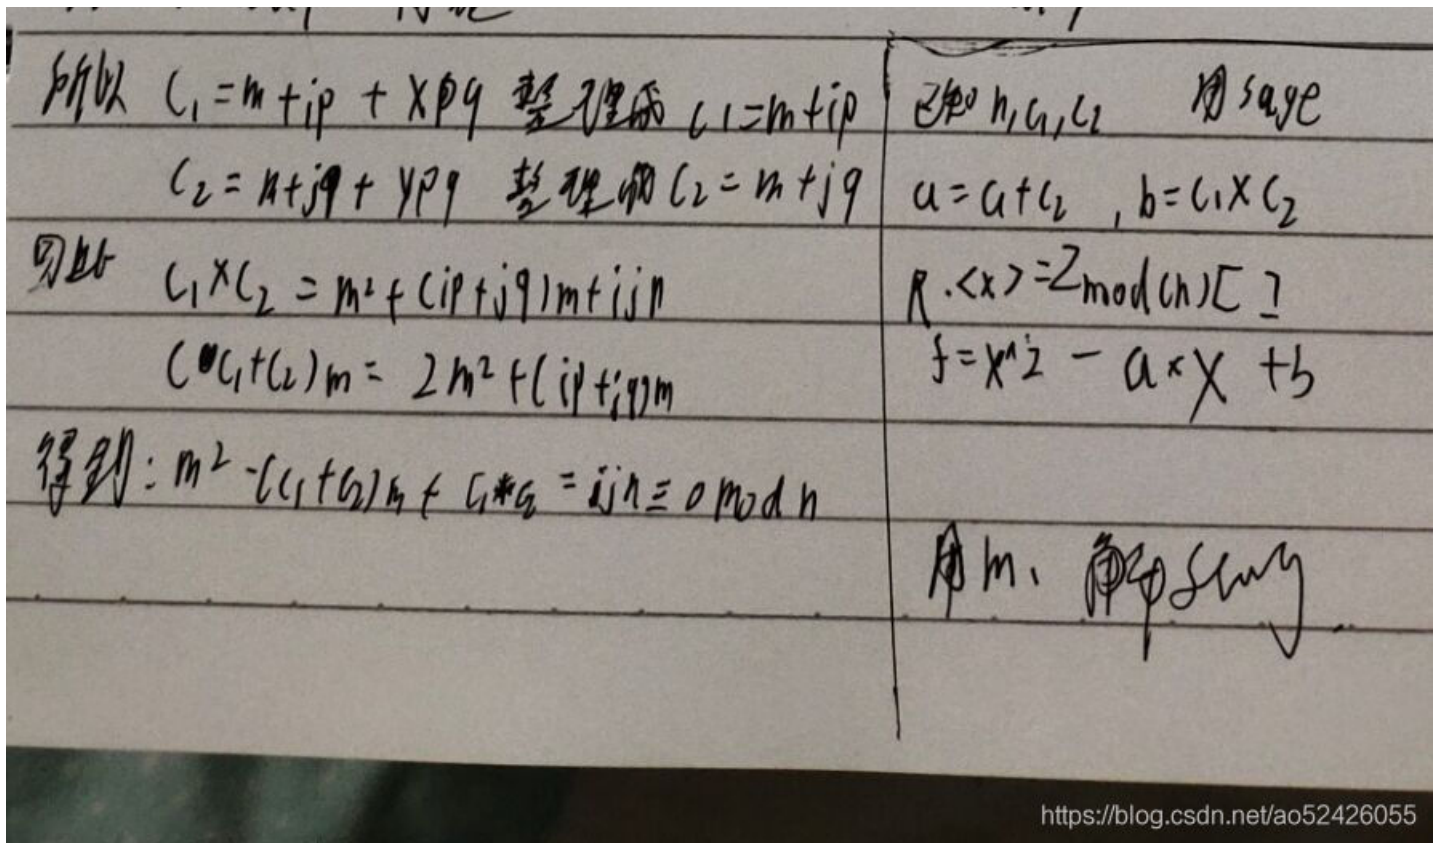 所以 C₁=m+ip+xpq 整理成 C1=m+ip
C₂=m+jq+ypq 整理成 C₂=m+jq
因此 C₁×C₂=m²+(ip+jq)m+ijn
(C₁+C₂)m=2m²+(ip+jq)m
得到:m²-(C₁+C₂)m+C₁*C₂=ijn≡0 mod n
已知n,C₁,C₂ 用sage
a=C₁+C₂,b=C₁×C₂
R.<x>=Zmod(n)[]
f=x^2-a*x+b
用m、解
https://blog.csdn.net/ao52426055